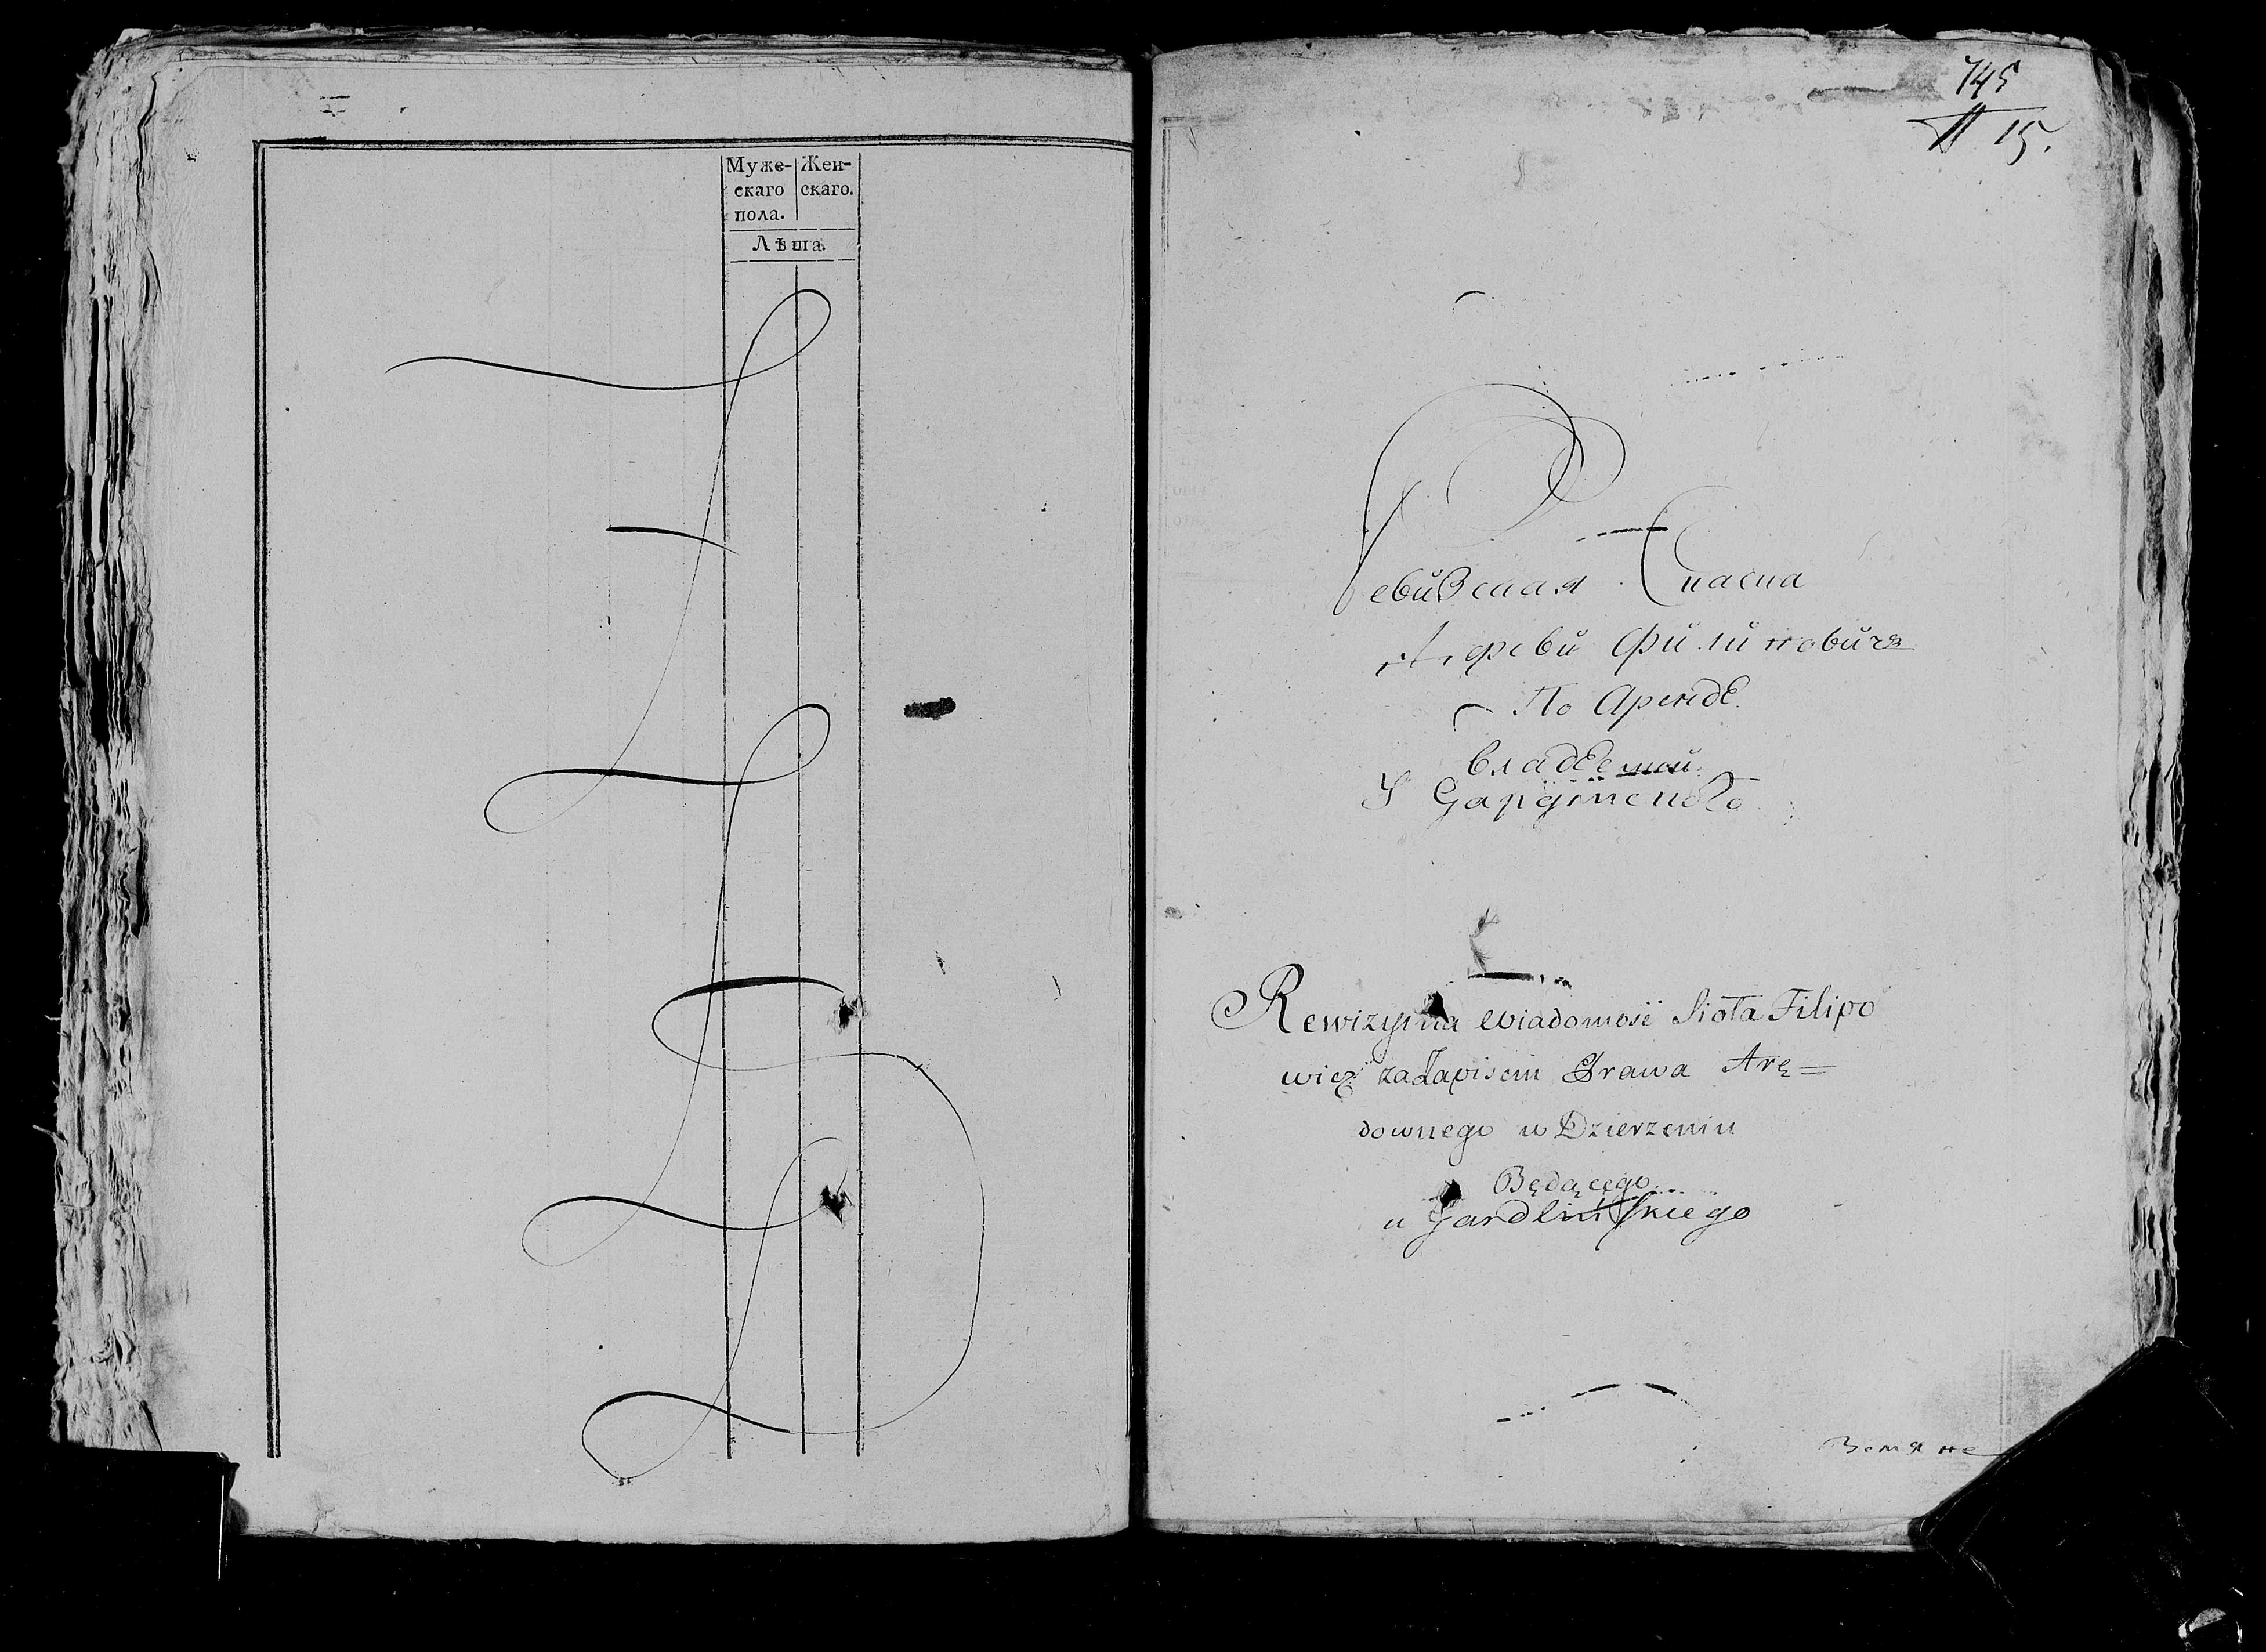 Муже-
скаго
пола.
Жен-
скаго.
Лѣта.
745
15.
Ревизская Скаска
Деревни Филиповичъ
По Арендѣ
владѣемой
У Гардлинского
Rewizyina Wiadomosć Sioła Filipo
wicz za Zapisem Prawa Arę=
downego w Dzierzeniu
Będącego
u Gardlińskiego
Земяне